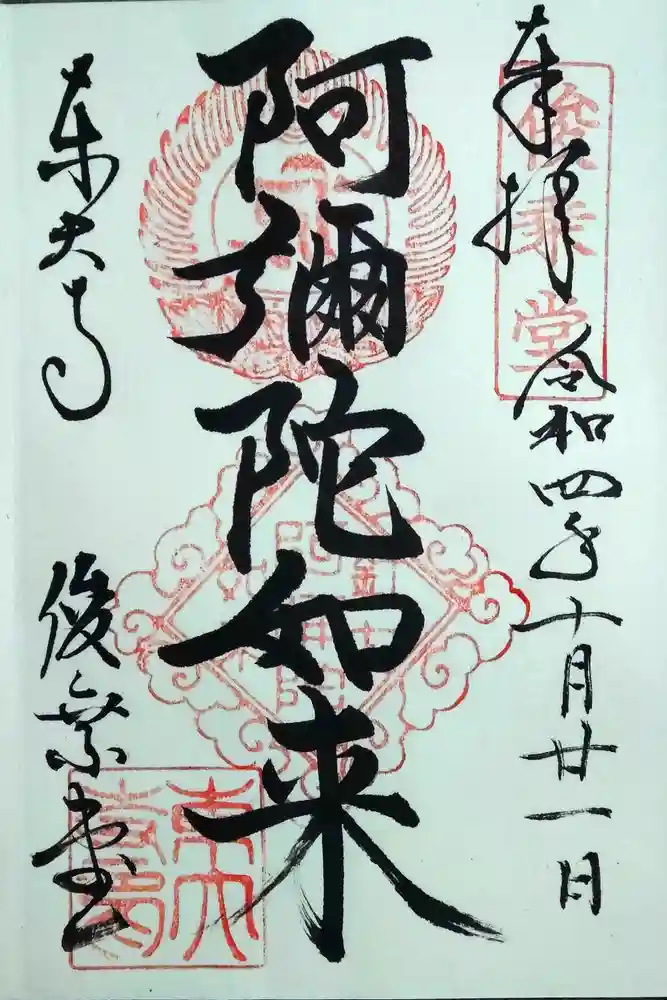 奉拝
俊乗堂
令和四年十月廿一日
阿彌陀如来
東大寺
俊乗堂